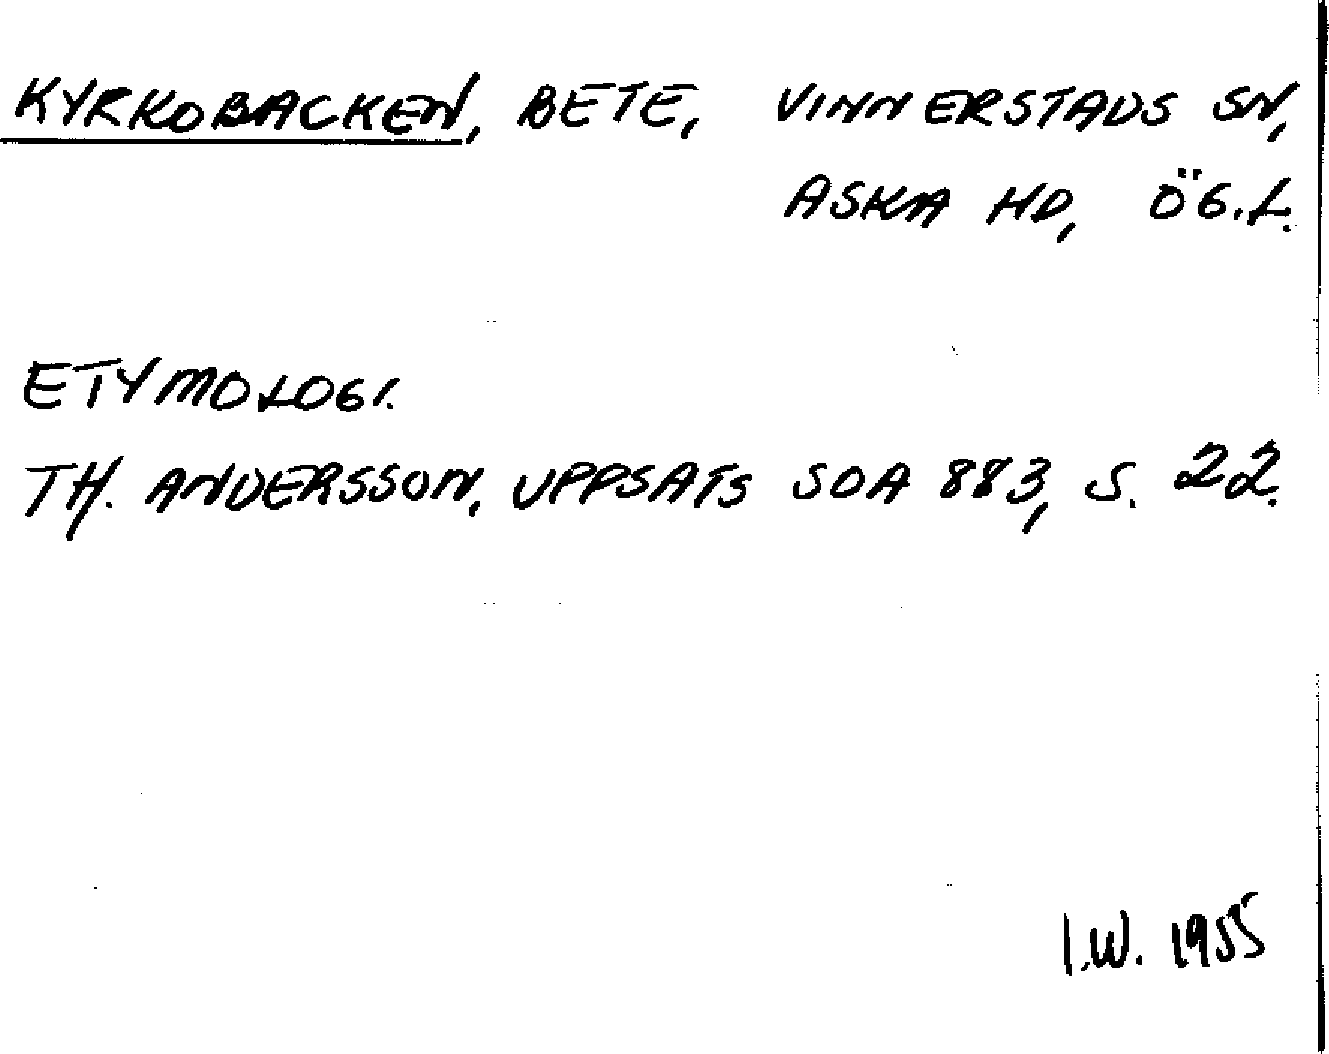 KYRKOBACKEN, BETE, VINNERSTADS SN,
ASKA HD, ÖG.L.
ETYMOLOGI.
TH. ANDERSSON, UPPSATS SOA 883, S. 22.
I.W. 1955